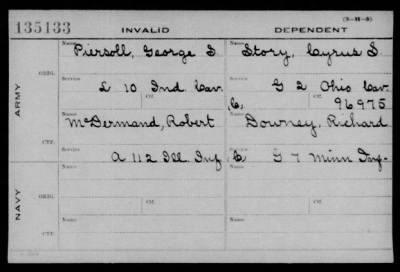 (3-M-3)
135133 INVALID DEPENDENT
Name Piersoll, George S. Name Story, Cyrus S.
ARMY ORIG. Service L 10 Ind Cav. Service G 2 Ohio Cav.
CF. C. CF. 96975
Name McDermand, Robert Name Downey, Richard
CTF. Service A 112 Ill Inf Service C G 7 Minn Inf-
NAVY ORIG. Name Name
CTF. Name Name